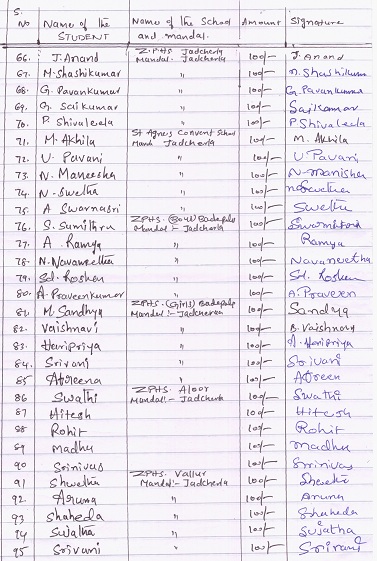 S. No Name of the STUDENT Name of the School and mandal. Amount Signature
66. J. Anand Z.P.H.S Jadcherla Mandal:- Jadcherla 100/- J. Anand
67. M. Shashikumar " 100/- M. Shashikumar
68. G. Pavankumar " 100/- G. Pavankumar
69. G. Saikumar " 100/- Saikumar
70. P. Shivaleela " 100/- P. Shivaleela
71. M. Akhila St Agnes Convent School Mandl Jadcherla 100/- M. Akhila
72. U. Pavani " 100/- U. Pavani
73. N. Maneesha " 100/- N. Manisha
74. N. Swetha " 100/- N. Swetha
75. A Swarnasri " 100/- Swetha
76. S. Sumithra ZPHS. Mandal:- Jadcherla 100/-
77. A. Ramya " 100/- Ramya
78. N. Navaneetha " 100/- Navaneetha
79. Sd. Roshen " 100/- Sd. Roshen
80. A. Praveenkumar " 100/- A. Praveen
81. M. Sandhya ZPHS. (Girls) Badepally Mandal:- Jadcherla 100/- Sandya
82. Vaishnavi " 100/- B. Vaishnavy
83. Haripriya " 100/- A. Haripriya
84. Srivani " 100/- Srivani
85 Afreena " 100/- Afreen
86 Swathi ZPHS. Aloor Mandal:- Jadcherla 100/- Swathi
87 Hitesh " 100/- Hitesh
88 Rohit " 100/- Rohit
89 Madhu " 100/- madhu
90 Srinivas " 100/- Srinivas
91 Shwetha ZPHS. Vallur Mandal:- Jadcherla 100/- Shwetha
92 Aruna " 100/- Aruna
93 Shaheda " 100/- Shaheda
94 Sujatha " 100/- Sujatha
95 Srivani " 100/- Srivani